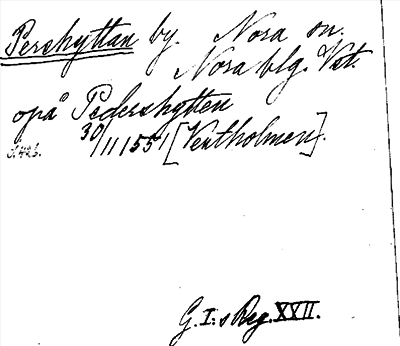 Pershyttan by. Nora sn.
Nora blg. Vst.
opå Pedershytten
s. 426. 30/11 1551 [Vestholmen].
G. I:s Reg. XXII.